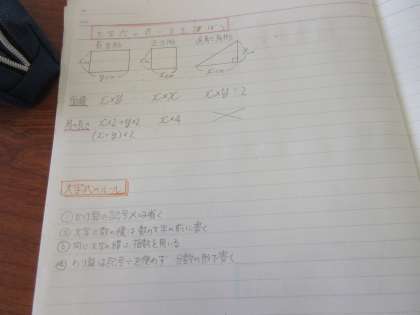 文字式
長方形 正方形 直角三角形
x y x x x y
面積 x×y x×x x×y÷2
x×2+y×2 x×4
(x+y)×2
文字式のルール
① かけ算の記号×は省く
② 文字と数の積は数を文字の前に書く
③ 同じ文字の積は、指数を用いる
④ わり算は記号÷を使わず 分数の形で書く